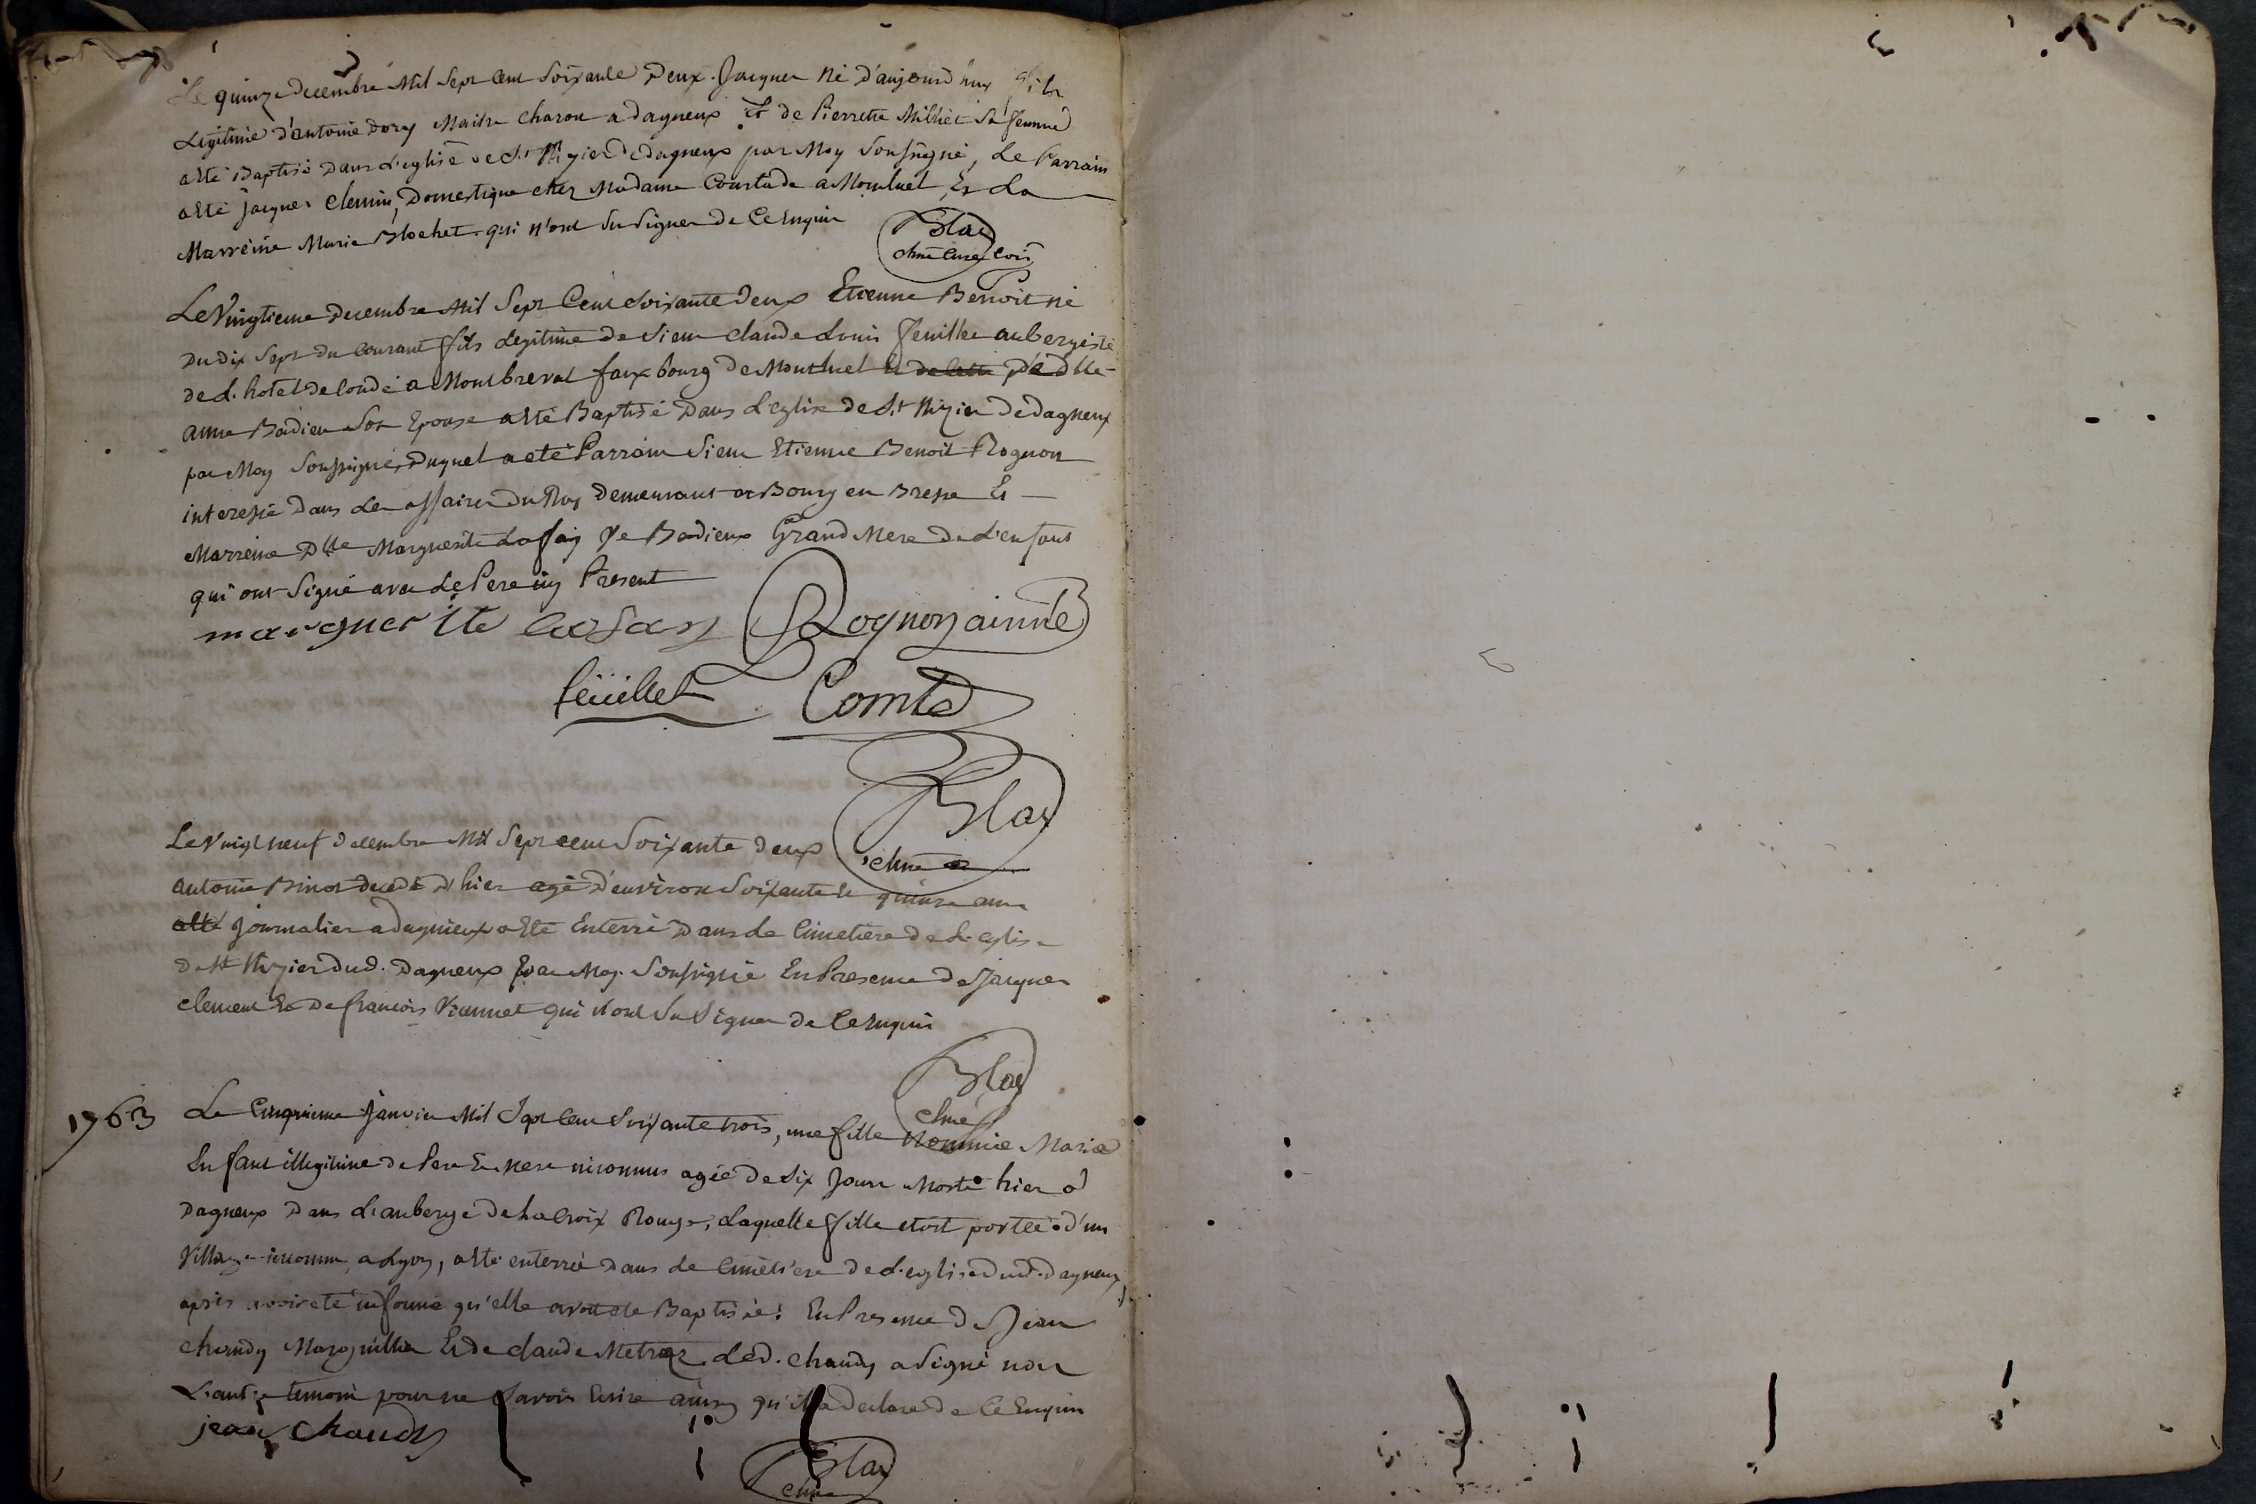 Le quinze decembre Mil Sept Cent Soixante Deux. Jacques né d'aujourd'huy fils
Legitime d'antoine dory Maitre charon a dagneux Et de Pierrette Milliet Sa femme
a Eté Baptisé Dans L'eglise de St Nizier De dagneux par Moy Soussigné, Le Parrain
a Eté jacques clemin, Domestique chez Madame Courtade a Montluel, Et La
Marreine Marie Blochet qui n'ont Su Signer De Ce Enquis
Blay
chne Curé Com
Le Vingtieme Decembre Mil Sept Cent Soixante deux Etienne Benoit né
Du dix Sept du Courant fils Legitime de Sieur claude Louis feuillet aubergiste
de L'hotel de Condé a Montbreval faux bourg de Montluel Et de D'elle
anne Badieu Son Epouse a Eté Baptisé Dans L'eglise de St Nizier de dagneux
par Moy Soussigné, Duquel a eté Parrain Sieur Etienne Benoit Rognon
interessé Dans Les affaires Du Roy Demeurant a Bourg en Bresse Et
Marreine Dlle Marguerite Lafay Ve Badieux Grand Mere De L'enfant
qui ont Signé avec Le Pere icy Present
marguerite lafay Rognon ainné
feüillet Comte
Blay
chne
Le Vingt neuf decembre Mil Sept cent Soixante deux
antoine Binot decedé d'hier agé D'environ Soixante Et quinze ans
journalier a dagnieux a Eté Enterré Dans Le Cimetiere De L'eglise
De St Nizier Dud. Dagneux Par Moy Soussigné En Presence De Jacques
clement Et De francois Viannet qui n'ont Su Signer De Ce Enquis
Blay
chne
1763
Le Cinquieme Janvier Mil Sept Cent Soixante trois, une fille Nommée Marie
Enfant illegitime De Pere Et Mere inconnus agée De Six Jours Morte hier a
Dagneux Dans L'auberge de La Croix Rouge, Laquelle fille etoit portée d'un
Village inconnu a Lyon, a Eté enterrée Dans Le Cimetiere De L'eglise Dud. Dagneux,
après avoir eté informé qu'elle avoit eté Baptisée: En Presence De Jean
chaudy Marguillier Et de claude Metraz Led. chaudy a Signé non
L'autre temoin pour ne Savoir Ecrire ainsy qu'il a Declaré De Ce Enquis
jean chaudy
Blay
chne